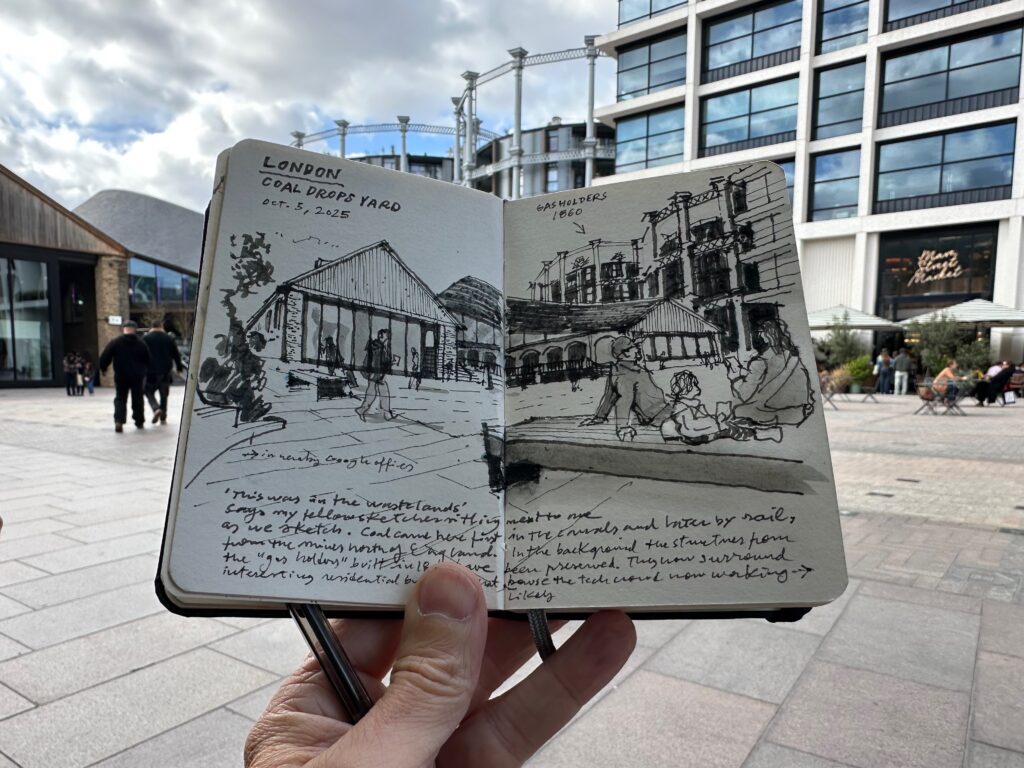 LONDON
COAL DROPS YARD
OCT. 5, 2025
GASHOLDERS
1860
→ in nearby Google offices
'This was in the wastelands'
says my fellow sketcher sitting next to me
as we sketch. Coal came here first in the canals, and later by rail,
from the mines north of England. In the background the structures from
the "gas holders" built in 18 have been preserved. They now surround
interesting residential house the tech crowd now working →
likely